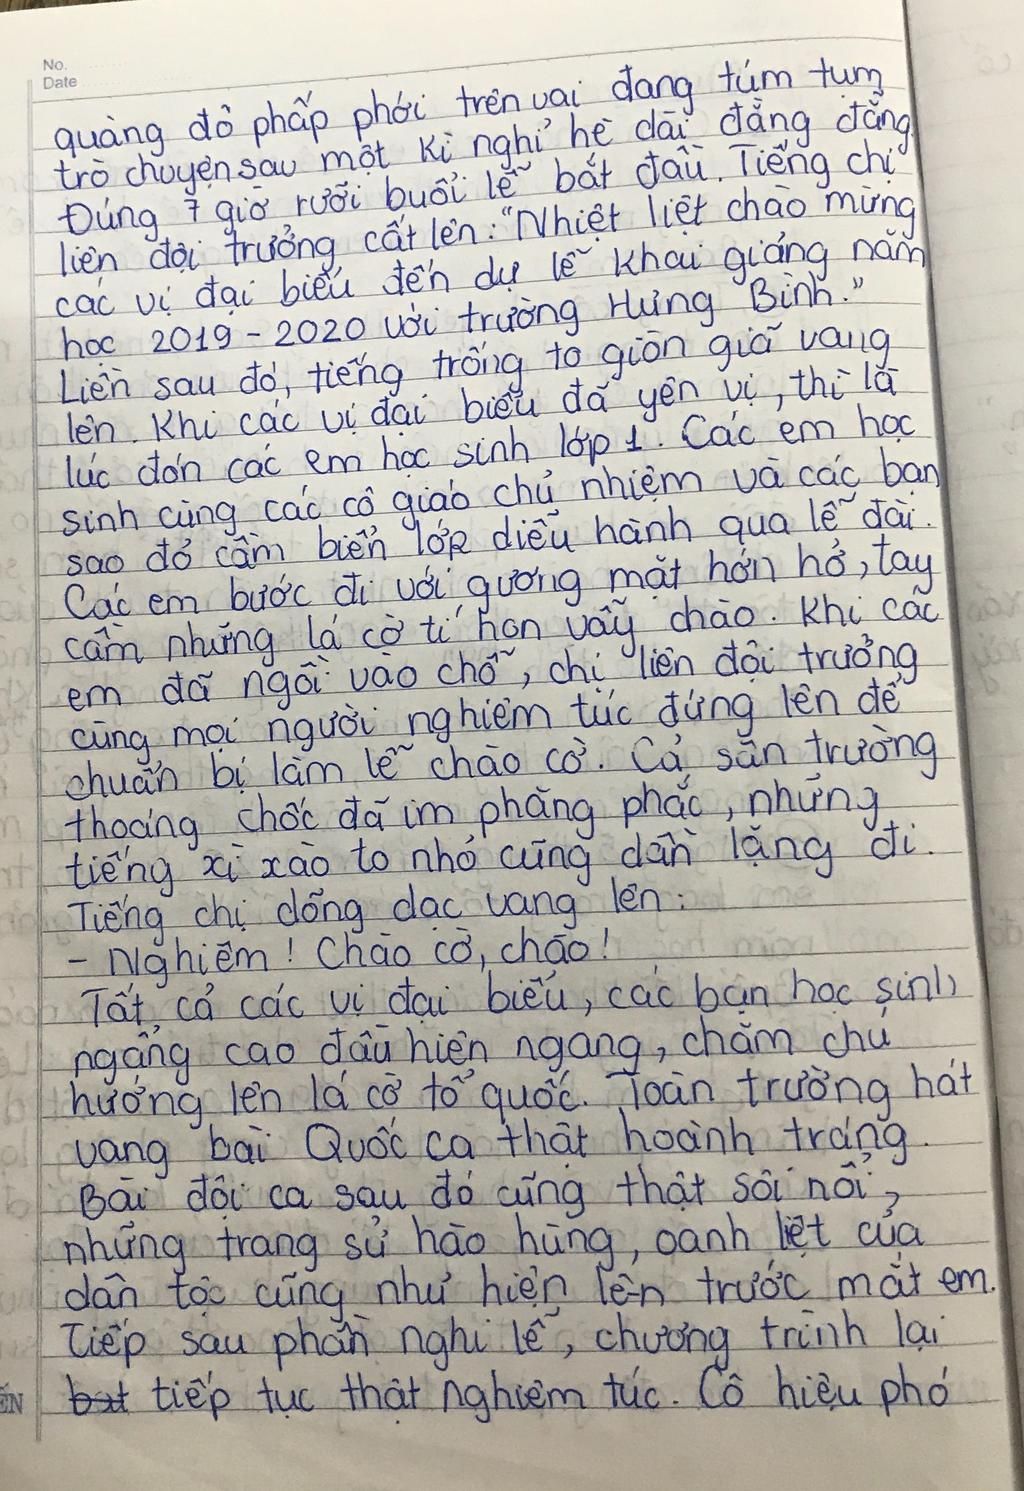 No.
Date
quàng đỏ phấp phới trên vai đang túm tụm
trò chuyện sau một kì nghỉ hè dài đằng đẵng.
Đúng 7 giờ rưỡi buổi lễ bắt đầu. Tiếng chị
liên đội trưởng cất lên: "Nhiệt liệt chào mừng
các vị đại biểu đến dự lễ khai giảng năm
học 2019 - 2020 với trường Hưng Bình."
Liền sau đó, tiếng trống to giòn giã vang
lên. Khi các vị đại biểu đã yên vị, thì là
lúc đón các em học sinh lớp 1. Các em học
sinh cùng các cô giáo chủ nhiệm và các bạn
sao đỏ cầm biển lớp diễu hành qua lễ đài.
Các em bước đi với gương mặt hớn hở, tay
cầm những lá cờ tí hon vẫy chào. Khi các
em đã ngồi vào chỗ, chị liên đội trưởng
cùng mọi người nghiêm túc đứng lên để
chuẩn bị làm lễ chào cờ. Cả sân trường
thoáng chốc đã im phăng phắc, những
tiếng xì xào to nhỏ cũng dần lặng đi.
Tiếng chị dõng dạc vang lên:
- Nghiêm! Chào cờ, chào!
Tất cả các vị đại biểu, các bạn học sinh
ngẩng cao đầu hiên ngang, chăm chú
hướng lên lá cờ tổ quốc. Toàn trường hát
vang bài Quốc ca thật hoành tráng.
Bài đội ca sau đó cũng thật sôi nổi,
những trang sử hào hùng, oanh liệt của
dân tộc cũng như hiện lên trước mắt em.
Tiếp sau phần nghi lễ, chương trình lại
bắt tiếp tục thật nghiêm túc. Cô hiệu phó